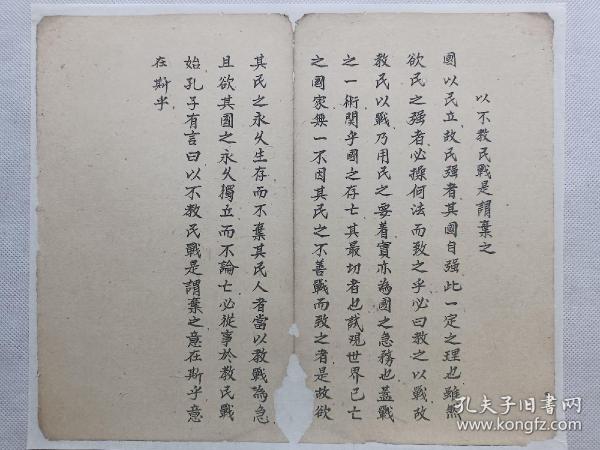 以不教民戰是謂棄之
國以民立故民强者其國自强此一定之理也雖然
欲民之强者必操何法而致之乎必曰教之以戰故
教民以戰乃用民之要着實亦為國之急務也盖戰
之一術関乎國之存亡其最切者也試观世界已亡
之國家無一不因其民之不善戰而致之者是故欲
其民之永久生存而不棄其民人者當以教戰為急
且欲其國之永久獨立而不論亡必從事於教民戰
始孔子有言曰以不教民戰是謂棄之意在斯乎意
在斯乎
孔夫子旧书网
www.kongfz.com